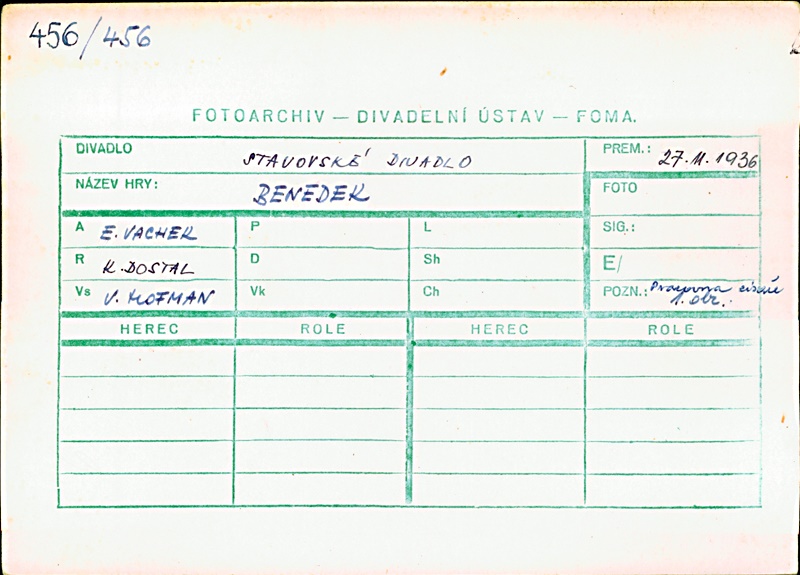 456/456
FOTOARCHIV — DIVADELNÍ ÚSTAV — FOMA.
DIVADLO STAVOVSKÉ DIVADLO PREM.: 27.11.1936
NÁZEV HRY: BENEDEK FOTO
A E. VACHEK P L SIG.:
R K. DOSTAL D Sh E/
Vs V. HOFMAN Vk Ch POZN.: Pracovna císaře
1. obr.
HEREC ROLE HEREC ROLE